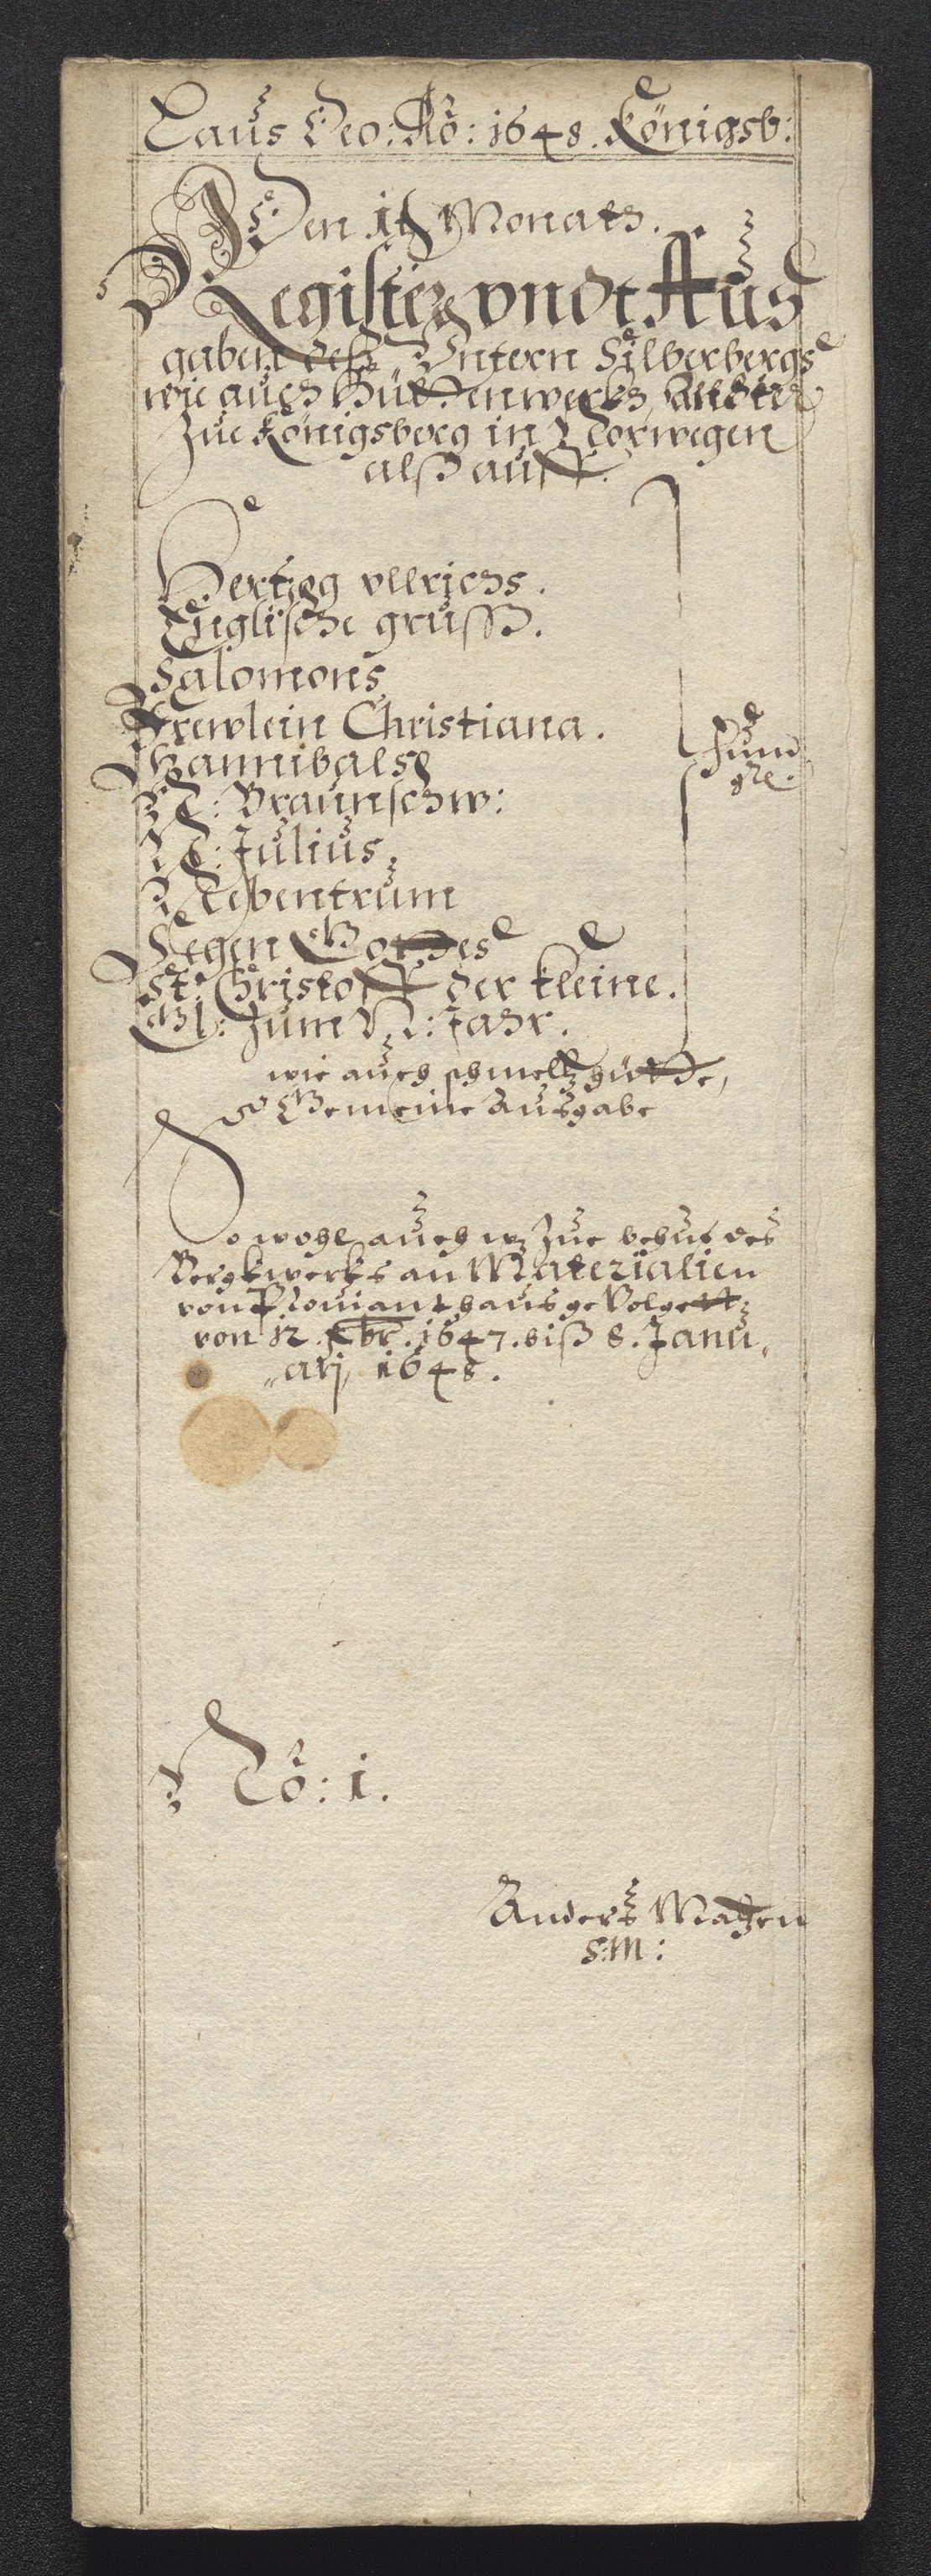 Laus Deo: Ao: 1648. Königsb:
Den 1t Monats.
Register vndt Aus
gaben deß Vntern Silberbergs
wie auch Hüttenwerks, allhier
Zue Königsberg in Norwegen
alß auff.
Hertzog vllrichs.
Englische gruß.
Salomons
Frewlein Christiana.
Hannibals
N: Braunschw:
N: Julius.
Rebentrum
Segen Gottes
St. Christoff der kleine.
Gl: Zum N: Jahr.
Fund
gr.
wie auch schmeltzhütte,
Gemeine Ausgabe
So wohl auch wz Zue behuf des
Bergkwerks an Materialien
von Proviant haus gevolgett
von 12. Xbr. 1647. biß 8. Janu„
„arj, 1648.
No: 1.
Anders Matzen
s:m: